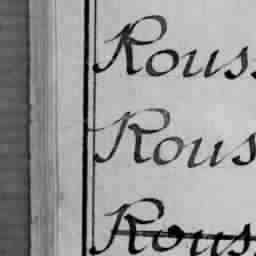 Rouss
Rous
Rous